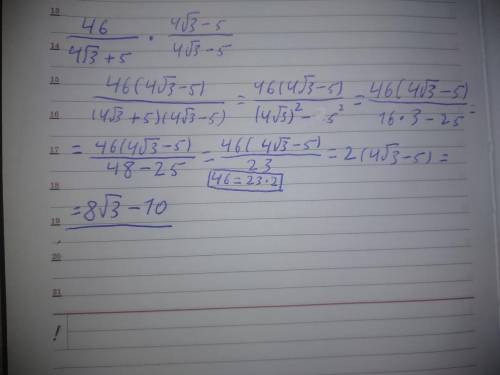 13
46/(4√3+5) · (4√3-5)/(4√3-5)
14
15
46(4√3-5)/((4√3+5)(4√3-5)) = 46(4√3-5)/((4√3)²-5²) = 46(4√3-5)/(16·3-25) =
16
= 46(4√3-5)/(48-25) = 46(4√3-5)/23 = 2(4√3-5) =
17
46=23·2
18
=8√3-10
19
20
21
!